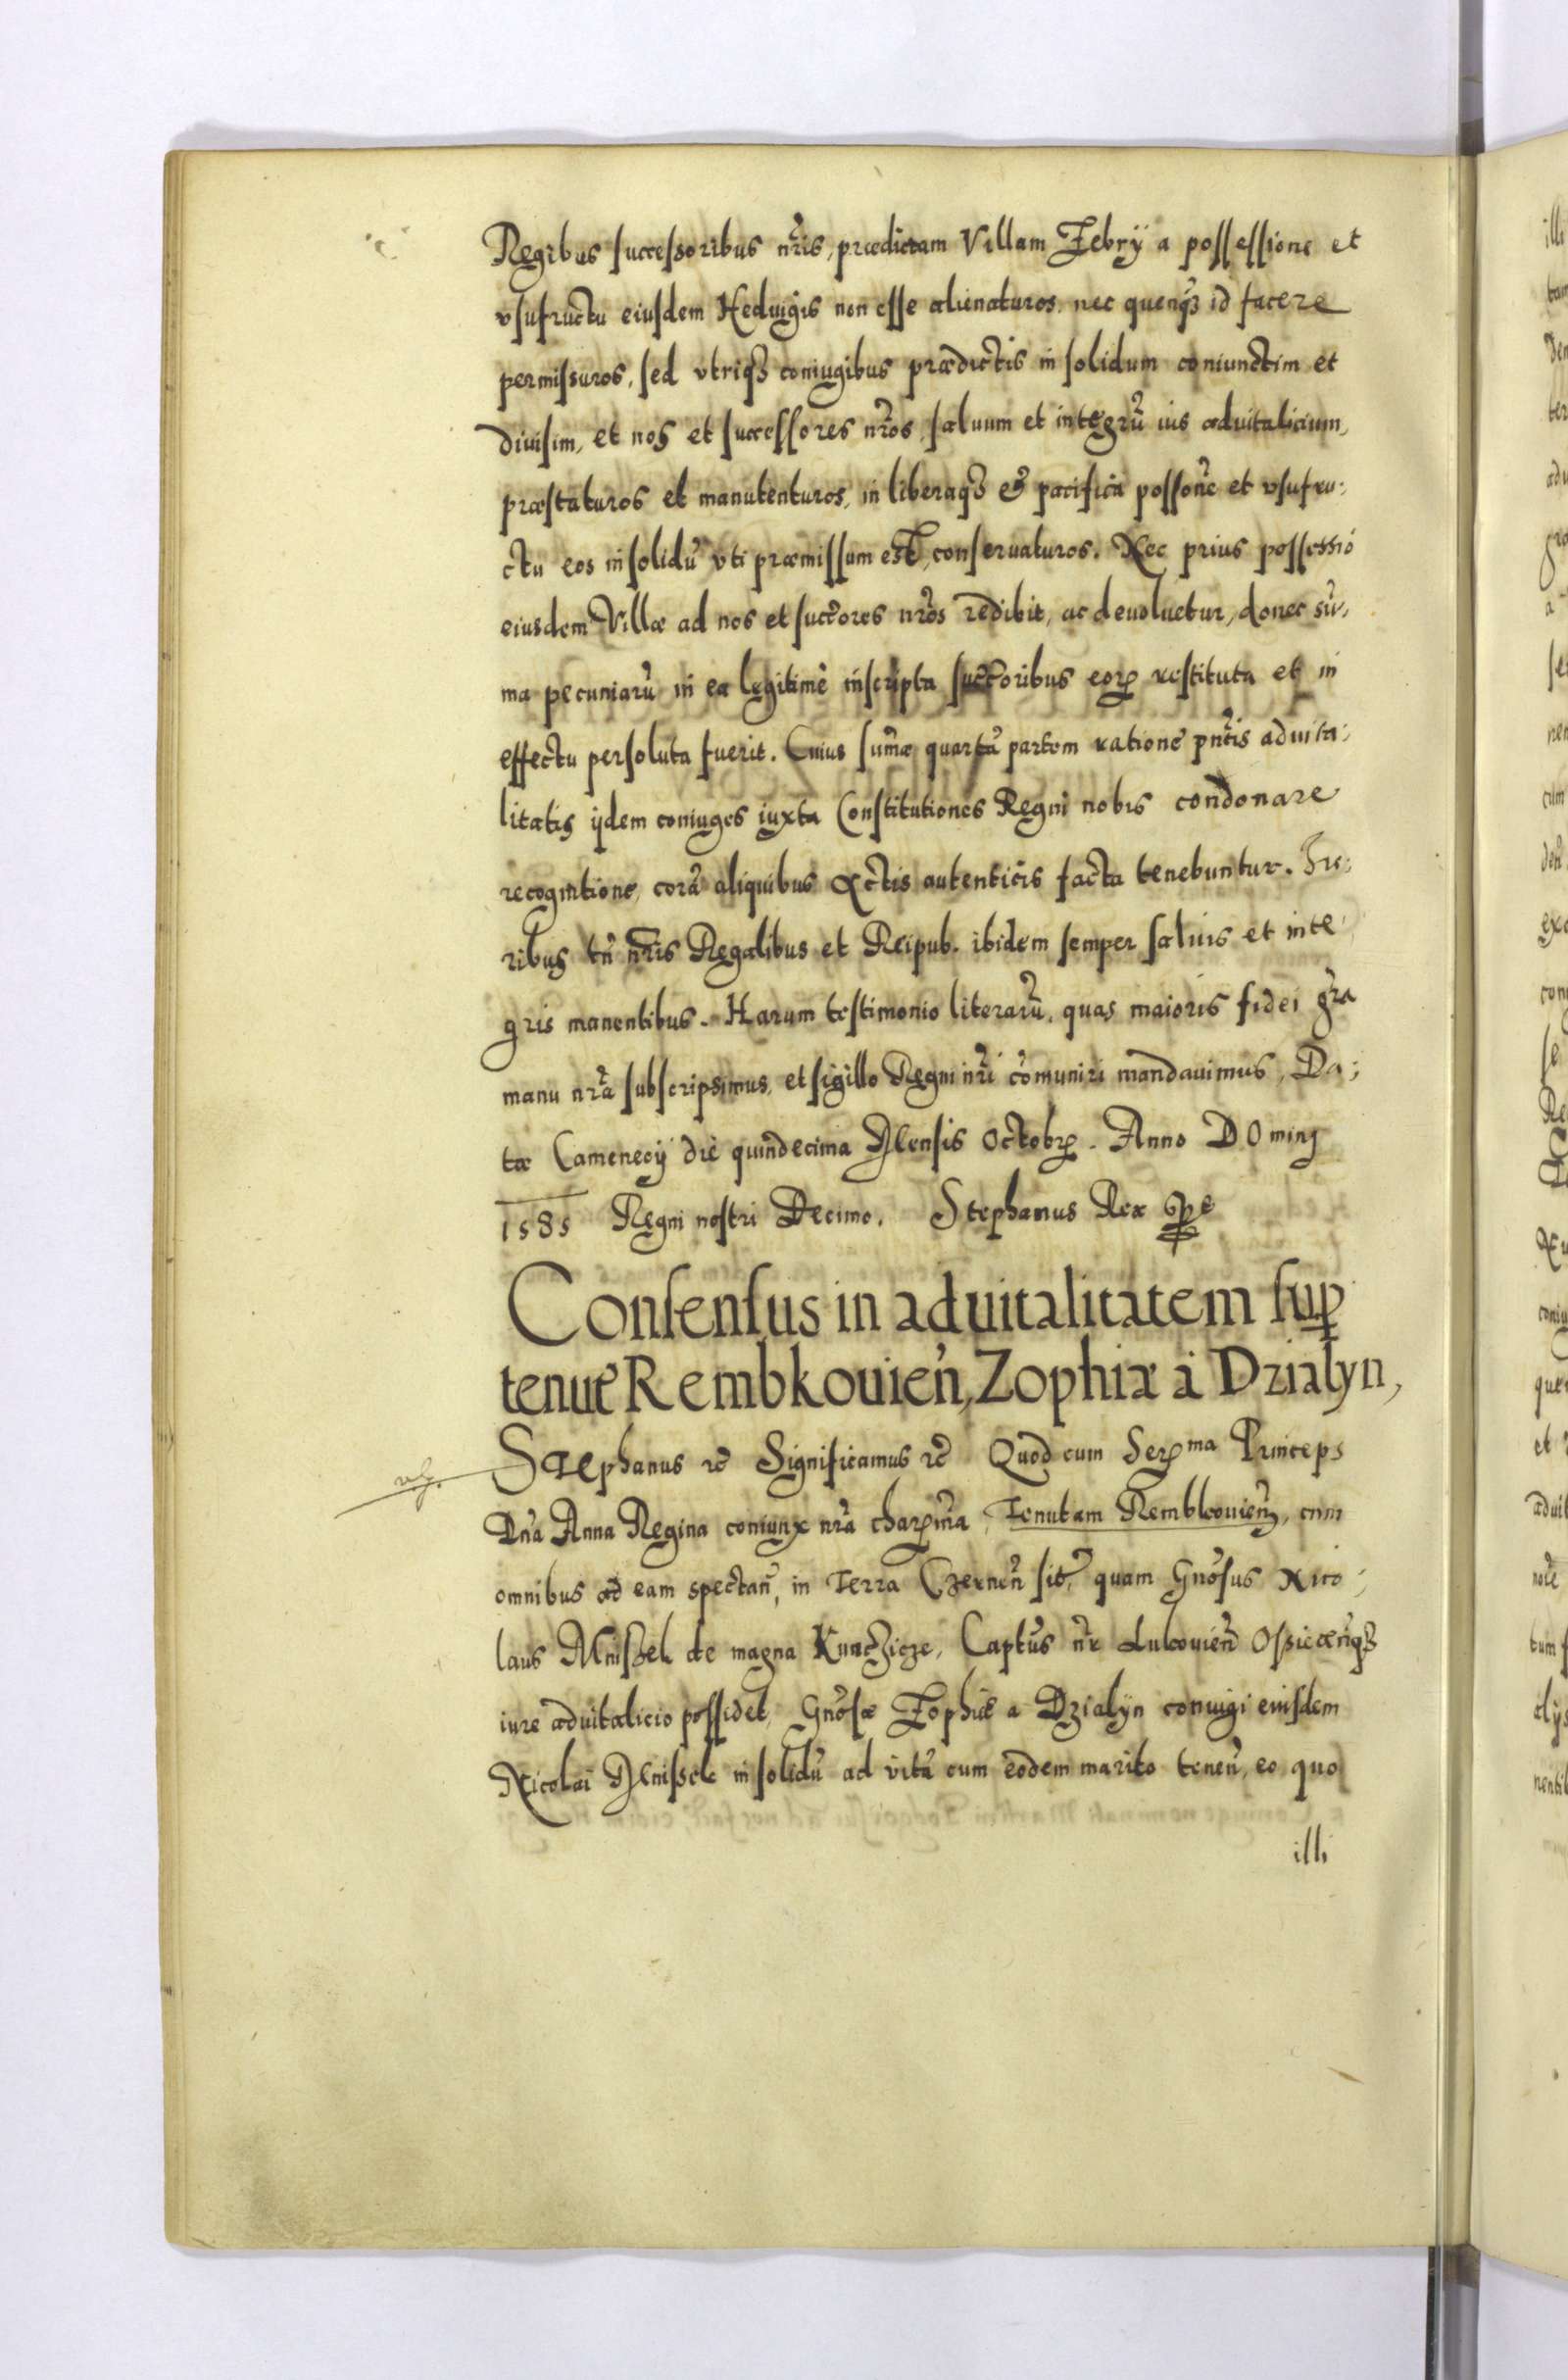 Regibus successoribus nr̃is, prædictam Villam Zebrÿ a possessione et
vsufructu eiusdem Heduigis non esse alienaturos, nec quenqꝫ id facere
permissuros, sed vtrisqꝫ coniugibus prædictis in solidum coniunctim et
diuisim, et nos et successores nr̃os saluum et integrũ ius aduitalicium,
præstaturos et manutenturos, in liberaqꝫ & pacifica possor̃e et vsufru:
ctu eos in solidũ vti præmissum est, conseruaturos. Nec prius possessio
eiusdem Villæ ad nos et succ̃ores nr̃os redibit, ac deuoluetur, donec sũ,
ma pecuniarũ in ea legitimè inscripta succ̃oribus eorꝝ restituta et in
effectu persoluta fuerit. Cuius sum̃æ quartã partem ratione pñtis aduita:
litatis ijdem coniuges iuxta Constitutiones Regni nobis condonare
recognitione, corã aliquibus Actis autenticis facta tenebuntur. Iu:
ribus tñ nr̃is Regalibus et Reipub. ibidem semper saluis et inte
gris manentibus. Harum testimonio literarũ, quas maioris fidei gr̃a
manu nr̃a subscripsimus, et sigillo Regni nr̃i cõmuniri mandauimus, Da:
tæ Camenecÿ diè quindecima Mensis Octobꝝ. Anno DOminj
1585 Regni nostri Decimo. Stephanus Rex
Consensus in aduitalitatem suꝑ
tenut̃ Rembkouieñ, Zophiæ à Dzialyn,
Stephanus ꝛc̃ Significamus ꝛc̃ Quod cum Serꝝma Princeps
Dña Anna Regina coniunx nr̃a charꝝm̃a, Tenutam Rembkouieñ, cum
omnibus ad eam spectañ, in Terra Czerneñ sit̃, quam Gnõsus Nico:
laus Mnißek de magna Kunczicze, Captũs nr̃ Lukouieñ Osieceñqꝫ
iure aduitalicio possidet, Gnõsæ Zophiæ a Dzialÿn coniugi eiusdem
Nicolai Mnißek in solidũ ad vitã cum eodem marito teneñ, eo quo
illi